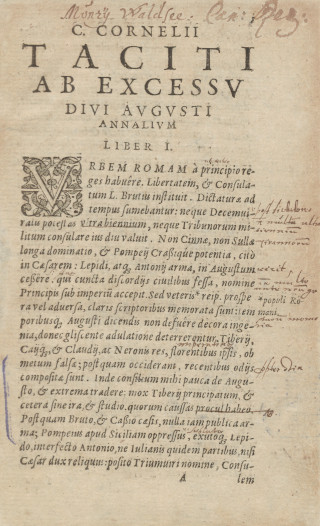 Monrij Waldsee. Can: Reg:
C. CORNELII
TACITI
AB EXCESSV
DIVI AVGVSTI
ANNALIVM
LIBER I.
VRBEM ROMAM à principio re-
ges habuêre. Libertatem, & Consula-
tum L. Brutus instituit. Dictaturæ ad
tempus sumebantur: neque Decemui-
ralis potestas vltra biennium, neque Tribunorum mi-
litum consulare ius diu valuit. Non Cinnæ, non Sullæ
longa dominatio, & Pompeij Crassique potentia, citò
in Cæsarem: Lepidi, atq. Antonij arma, in Augustum
cessêre. qui cuncta discordijs ciuilibus fessa, nomine
Principis sub imperiũ accepit. Sed veteris reip. prospe-
ra vel aduersa, claris scriptoribus memorata sunt: tem-
poribusq. Augusti dicendis non defuêre decora inge-
nia, donec gliscente adulatione deterrerentur. Tiberij,
Caijq, & Claudij, ac Neronis res, florentibus ipsis, ob
metum falsæ; postquam occiderant, recentibus odijs
compositæ sunt. Inde consilium mihi pauca de Augu-
sto, & extrema tradere: mox Tiberij principatum, &
cetera sine ira, & studio, quorum caussas procul habeo.
Postquam Bruto, & Cassio cæsis, nulla iam publica ar-
ma; Pompeius apud Siciliam oppressus, exutoq. Lepi-
do, interfecto Antonio, ne Iulianis quidem partibus, nisi
Cæsar dux reliquus: posito Triumuiri nomine, Consu-
A
lem